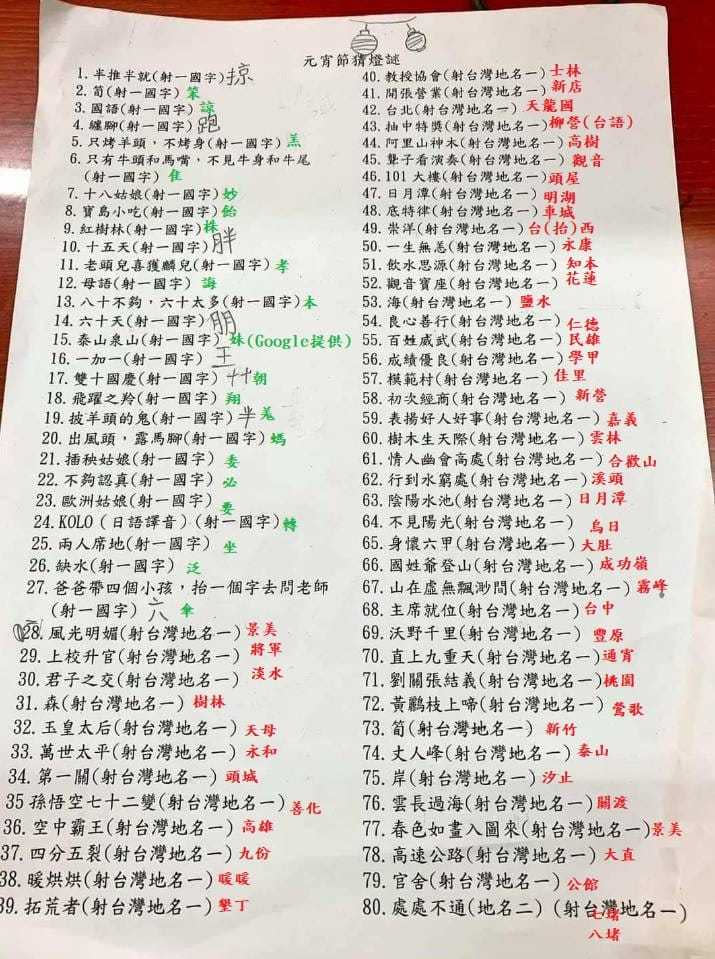 元宵節猜燈謎
1. 半推半就(射一國字)掠
2. 筍(射一國字) 笨
3. 國語(射一國字) 諒
4. 纏腳(射一國字) 跑
5. 只烤羊頭，不烤身(射一國字) 羔
6. 只有牛頭和馬嘴，不見牛身和牛尾
(射一國字) 隹
7. 十八姑娘(射一國字)妙
8. 寶島小吃(射一國字)飴
9. 紅樹林(射一國字)株
10. 十五天(射一國字)胖
11. 老頭兒喜獲麟兒(射一國字) 孝
12. 母語(射一國字) 誨
13. 八十不夠，六十太多(射一國字)本
14. 六十天(射一國字)朋
15. 泰山泉山(射一國字) 妹(Google提供)
16. 一加一(射一國字) 王
17. 雙十國慶(射一國字) 艹朝
18. 飛躍之羚(射一國字) 翔
19. 披羊頭的鬼(射一國字) 羋羌
20. 出風頭，露馬腳(射一國字) 螞
21. 插秧姑娘(射一國字) 委
22. 不夠認真(射一國字) 必
23. 歐洲姑娘(射一國字) 要
24. KOLO (日語譯音)(射一國字)轉
25. 兩人席地(射一國字) 坐
26. 缺水(射一國字) 泛
27. 爸爸帶四個小孩，抬一個字去問老師
(射一國字) 六 傘
28. 風光明媚(射台灣地名一)景美
29. 上校升官(射台灣地名一) 將軍
30. 君子之交(射台灣地名一) 淡水
31. 森(射台灣地名一) 樹林
32. 玉皇太后(射台灣地名一) 天母
33. 萬世太平(射台灣地名一)永和
34. 第一關(射台灣地名一) 頭城
35 孫悟空七十二變(射台灣地名一)善化
36. 空中霸王(射台灣地名一)高雄
37. 四分五裂(射台灣地名一)九份
38. 暖烘烘(射台灣地名一)暖暖
39. 拓荒者(射台灣地名一)墾丁
40. 教授協會(射台灣地名一)士林
41. 開張營業(射台灣地名一)新店
42. 台北(射台灣地名一) 天龍國
43. 抽中特獎(射台灣地名一)柳營(台語)
44. 阿里山神木(射台灣地名一)高樹
45. 聾子看演奏(射台灣地名一) 觀音
46. 101 大樓(射台灣地名一)頭屋
47. 日月潭(射台灣地名一) 明湖
48. 底特律(射台灣地名一)車城
49. 崇洋(射台灣地名一)台(抬)西
50. 一生無恙(射台灣地名一)永康
51. 飲水思源(射台灣地名一)知本
52. 觀音寶座(射台灣地名一)花蓮
53. 海(射台灣地名一) 鹽水
54. 良心善行(射台灣地名一)仁德
55. 百姓威武(射台灣地名一)民雄
56. 成績優良(射台灣地名一)學甲
57. 模範村(射台灣地名一)佳里
58. 初次經商(射台灣地名一) 新營
59. 表揚好人好事(射台灣地名一)嘉義
60. 樹木生天際(射台灣地名一)雲林
61. 情人幽會高處(射台灣地名一)合歡山
62. 行到水窮處(射台灣地名一)溪頭
63. 陰陽水池(射台灣地名一)日月潭
64. 不見陽光(射台灣地名一) 烏日
65. 身懷六甲(射台灣地名一)大肚
66. 國姓爺登山(射台灣地名一)成功嶺
67. 山在虛無飄渺間(射台灣地名一)霧峰
68. 主席就位(射台灣地名一)台中
69. 沃野千里(射台灣地名一) 豐原
70. 直上九重天(射台灣地名一)通宵
71. 劉關張結義(射台灣地名一)桃園
72. 黃鸝枝上啼(射台灣地名一) 鶯歌
73. 筍(射台灣地名一) 新竹
74. 丈人峰(射台灣地名一)泰山
75. 岸(射台灣地名一)汐止
76. 雲長過海(射台灣地名一)關渡
77. 春色如畫入圖來(射台灣地名一)景美
78. 高速公路(射台灣地名一) 大直
79. 官舍(射台灣地名一) 公館
80. 處處不通(地名二) (射台灣地名一)七堵
八堵